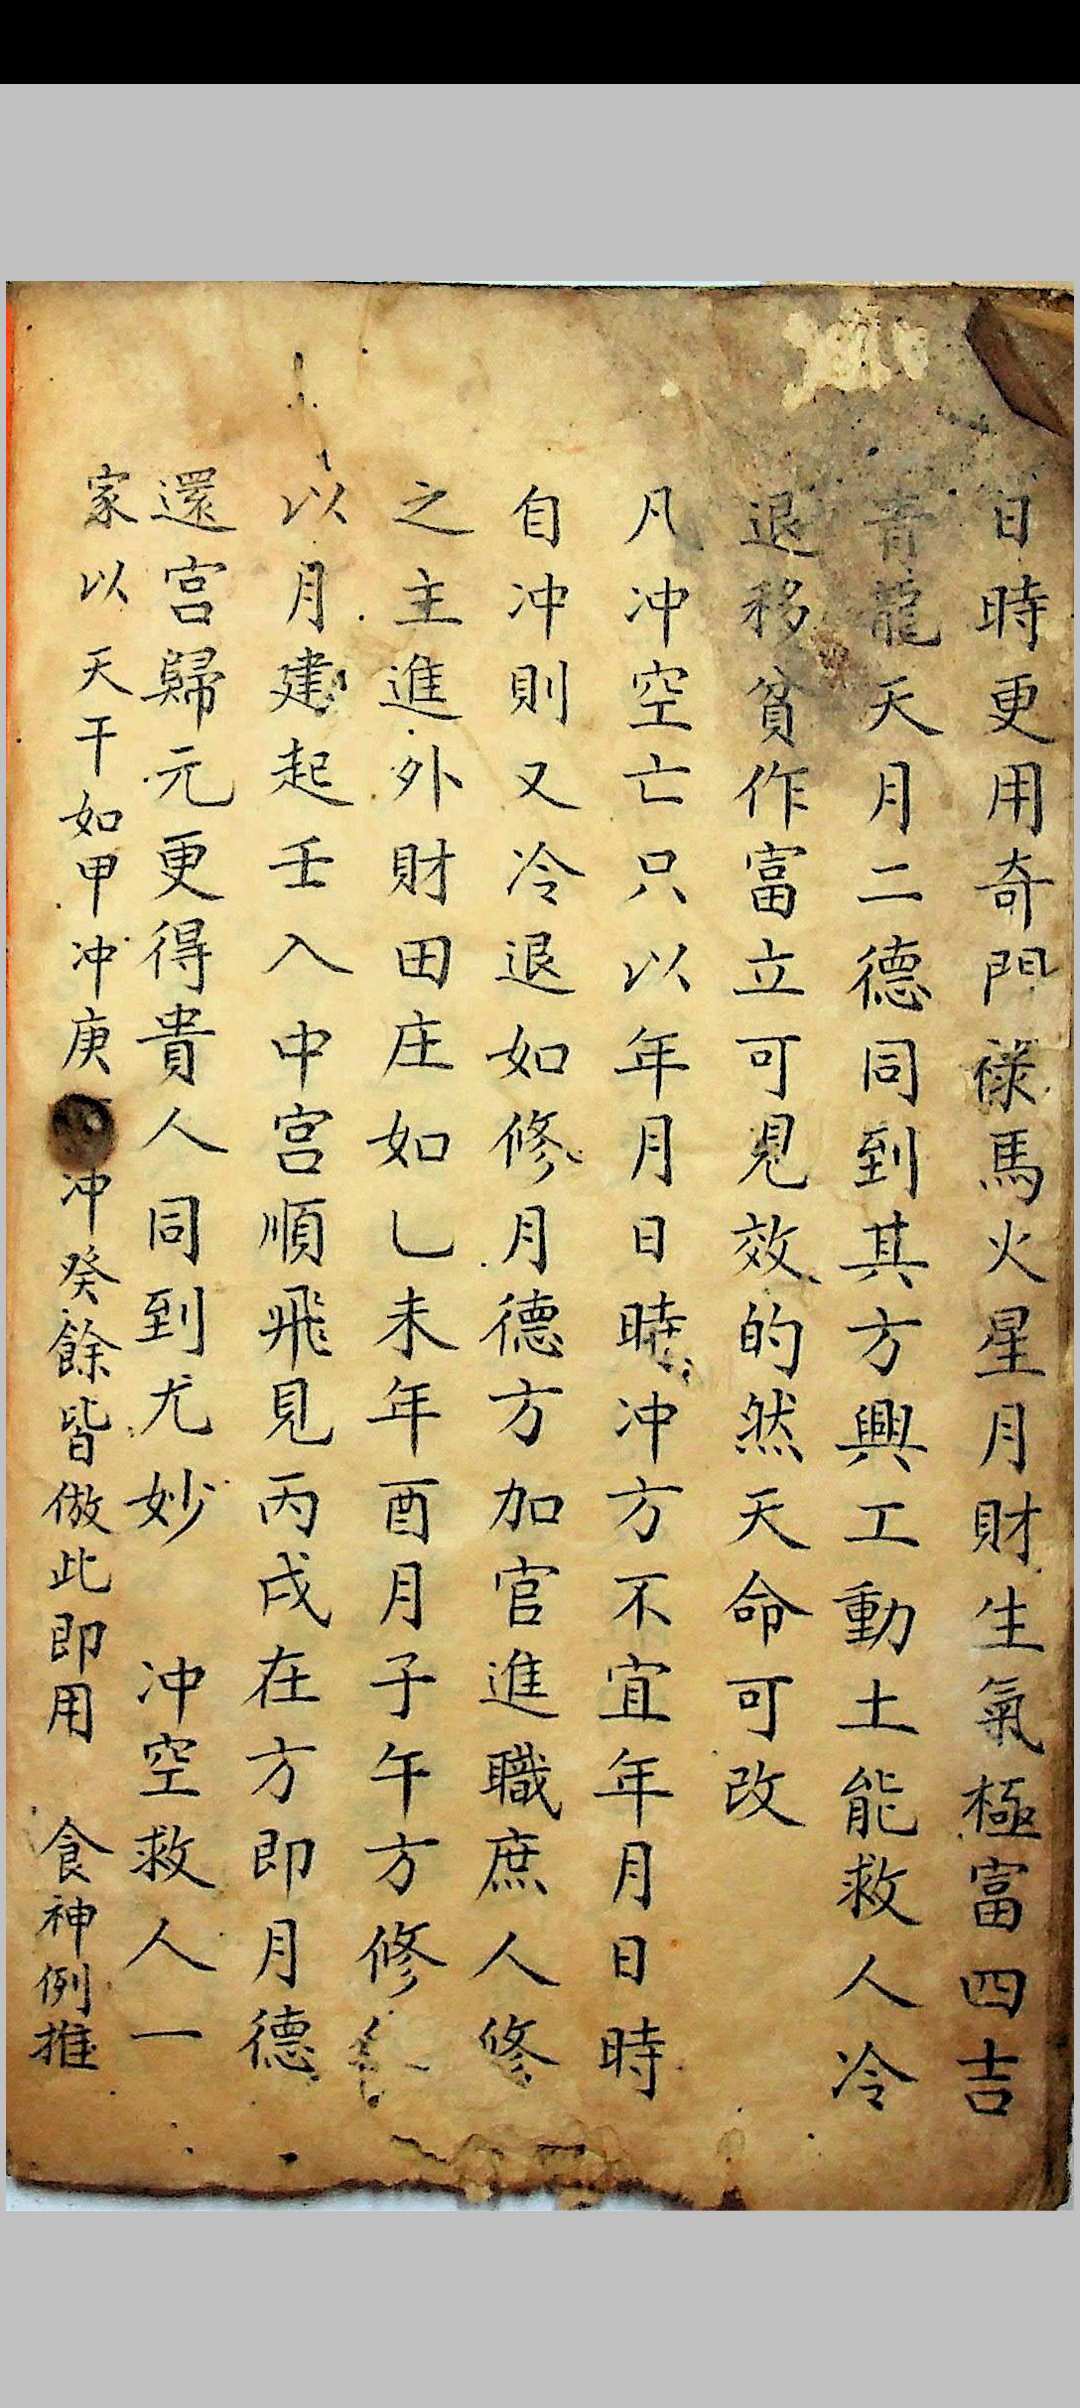 日時更用奇門祿馬火星月財生氣極富四吉
青龍天月二德同到其方興工動土能救人冷
退移貧作富立可見效的然天命可改
凡冲空亡只以年月日時冲方不宜年月日時
自冲則又冷退如修月德方加官進職庶人修
之主進外財田庄如乚未年酉月子午方修
以月建起壬入中宫順飛見丙戌在方即月德
還宫歸元更得貴人同到尤妙 冲空救人一
家以天干如甲冲庚 冲癸餘皆倣此即用 食神例推